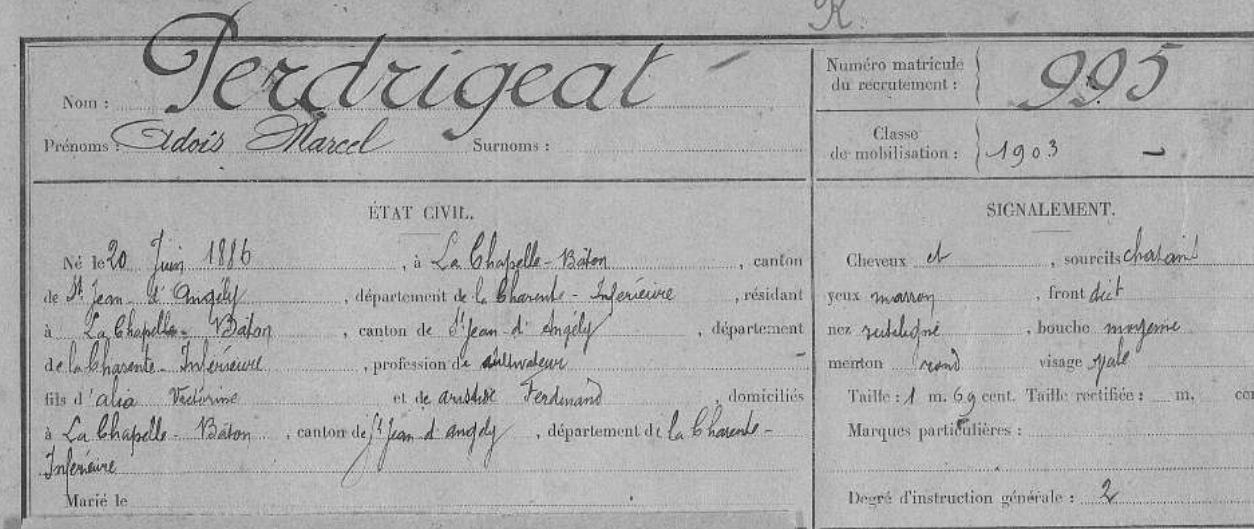 R.
Nom : Perdrigeat
Numéro matricule
du recrutement : 995
Prénoms : Adois Marcel Surnoms :
Classe
de mobilisation : 1903 -
ÉTAT CIVIL.
Né le 20 Juin 1886, à La Chapelle-Bâton, canton
de St Jean d'Angély, département de la Charente-Inférieure, résidant
à La Chapelle-Bâton, canton de St Jean d'Angély, département
de la Charente-Inférieure, profession de cultivateur
fils d'alia Victorine et de aristide Ferdinand, domiciliés
à La Chapelle-Bâton, canton de St Jean d'angély, département de la Charente-
Inférieure
Marié le
SIGNALEMENT.
Cheveux et, sourcils chatains
yeux marron, front
nez rectiligne, bouche moyenne
menton rond visage ovale
Taille : 1 m. 69 cent. Taille rectifiée : m. cen
Marques particulières :
Degré d'instruction générale : 2